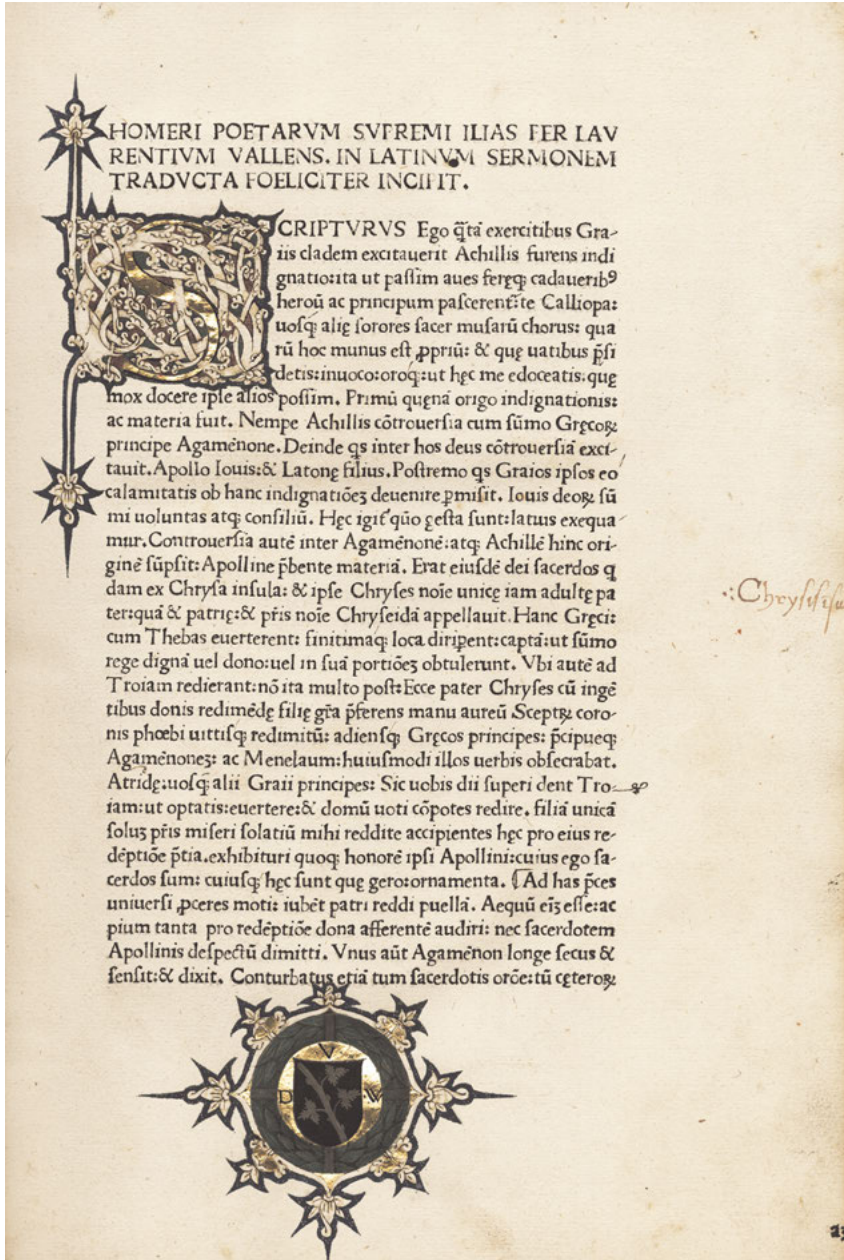 HOMERI POETARVM SVPREMI ILIAS PER LAV
RENTIVM VALLENS. IN LATINVM SERMONEM
TRADVCTA FOELICITER INCIPIT.
SCRIPTVRVS Ego q̃tã exercitibus Gra-
iis cladem excitauerit Achillis furens indi
gnatio:ita ut paſſim aues feręq; cadauerib⁹
heroũ ac principum paſcerent̃:te Calliopa:
uoſq; alię ſorores ſacer muſarũ chorus: qua
rũ hoc munus eſt ꝓpriũ: & quę uatibus p̃ſi
detis:inuoco:oroq;:ut hęc me edoceatis:quę
mox docere ipſe alios poſſim. Primũ quęnã origo indignationis:
ac materia fuit. Nempe Achillis cõtrouerſia cum ſũmo Gręcoꝝ
principe Agamẽnone. Deinde qs inter hos deus cõtrouerſiã exci-
tauit. Apollo Iouis:& Latonę filius. Poſtremo qs Graios ipſos eo
calamitatis ob hanc indignatiõeʒ deuenire ꝑmiſit. Iouis deoꝝ ſũ
mi uoluntas atq; conſiliũ. Hęc igit᷑ quõ geſta ſunt:latius exequa
mur. Controuerſia autẽ inter Agamẽnonẽ:atq; Achillẽ hinc ori-
ginẽ ſũpſit: Apolline p̃bente materiã. Erat eiuſdẽ dei ſacerdos q
dam ex Chryſa inſula: & ipſe Chryſes noĩe unicę iam adultę pa
ter:quã & patrię:& p̃ris noĩe Chryſeidã appellauit. Hanc Gręci:
cum Thebas euerterent: finitimaq; loca diriꝑent:captã:ut ſũmo
rege dignã uel dono:uel in ſuã portiõeʒ obtulerunt. Vbi autẽ ad
Troiam redierant:nõ ita multo poſt:Ecce pater Chryſes cũ ingẽ
tibus donis redimẽdę filię gr̃a p̃ferens manu aureũ Sceptꝝ coro-
nis phœbi uittiſq; redimitũ: adienſq; Gręcos principes: p̃cipueq;
Agamẽnoneʒ: ac Menelaum:huiuſmodi illos uerbis obſecrabat.
Atridę:uoſq; alii Graii principes: Sic uobis dii ſuperi dent Tro-
iam:ut optatis:euertere:& domũ uoti cõpotes redire. filiã unicã
ſoluʒ p̃ris miſeri ſolatiũ mihi reddite accipientes hęc pro eius re-
dẽptiõe p̃tia.exhibituri quoq; honorẽ ipſi Apollini:cuius ego ſa-
cerdos ſum: cuiuſq; hęc ſunt quę gero:ornamenta. ¶Ad has p̃ces
uniuerſi ꝓceres moti: iubẽt patri reddi puellã. Aequũ eĩʒ eſſe:ac
pium tanta pro redẽptiõe dona afferentẽ audiri: nec ſacerdotem
Apollinis deſpectũ dimitti. Vnus aũt Agamẽnon longe ſecus &
ſenſit:& dixit. Conturbatus etiã tum ſacerdotis orõe:tũ cęteroꝝ
V
D W